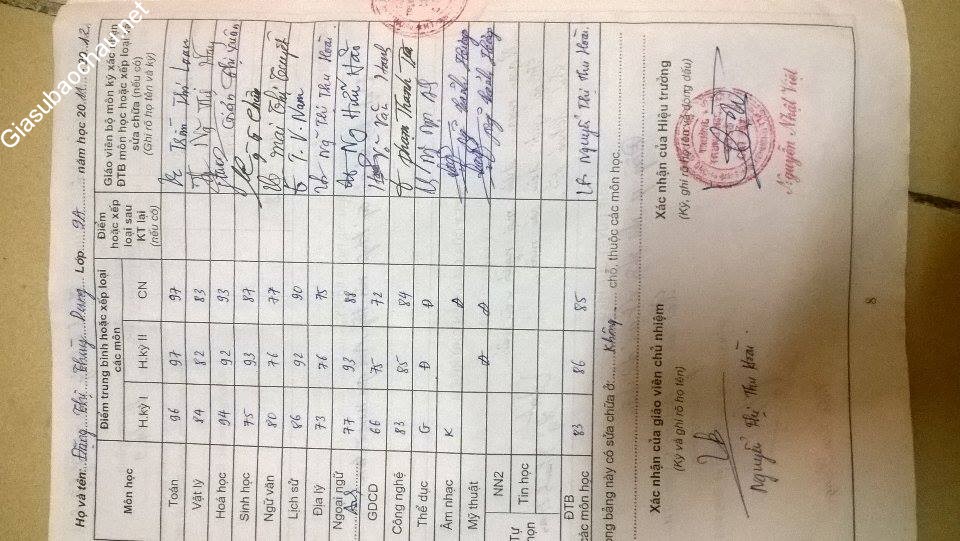 Giasubaochau.net
Họ và tên: Đặng Thị Thùy Dung Lớp 9A năm học 20 11 - 20 12
Môn học
Điểm trung bình hoặc xếp loại các môn
Điểm hoặc xếp loại sau KT lại (nếu có)
Giáo viên bộ môn ký xác nhận ĐTB môn học hoặc xếp loại và sửa chữa (nếu có)
(Ghi rõ họ tên và ký)
H.kỳ I H.kỳ II CN
Toán 96 97 97 Trần Thị Loan
Vật lý 84 82 83
Hoá học 94 92 93
Sinh học 75 93 87
Ngữ văn 80 76 77 Mai Thị Tuyết
Lịch sử 86 92 90 T. V. Nam
Địa lý 73 76 75 Ng Thị Thu Hoài
Ngoại ngữ Anh 77 93 88 Ng Hữu Hảo
GDCD 66 75 72
Công nghệ 83 85 84 Phạm Thanh
Thể dục G Đ Đ
Âm nhạc K Đ
Mỹ thuật Đ Đ
Tự chọn
NN2
Tin học
ĐTB các môn học 83 86 85 Nguyễn Thị Thu Hoài
ong bảng này có sửa chữa ở: không chỗ, thuộc các môn học
Xác nhận của giáo viên chủ nhiệm
(Ký và ghi rõ họ tên)
Nguyễn Thị Thu Hoài
Xác nhận của Hiệu trưởng
(Ký, ghi rõ họ tên và đóng dấu)
Nguyễn Nhật Việt
8